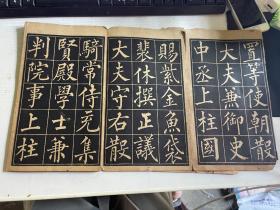 置等使朝散
大夫兼御史
中丞上柱國
賜紫金魚袋
裴休撰正議
大夫守右散
騎常侍充集
賢殿學士兼
判院事上柱